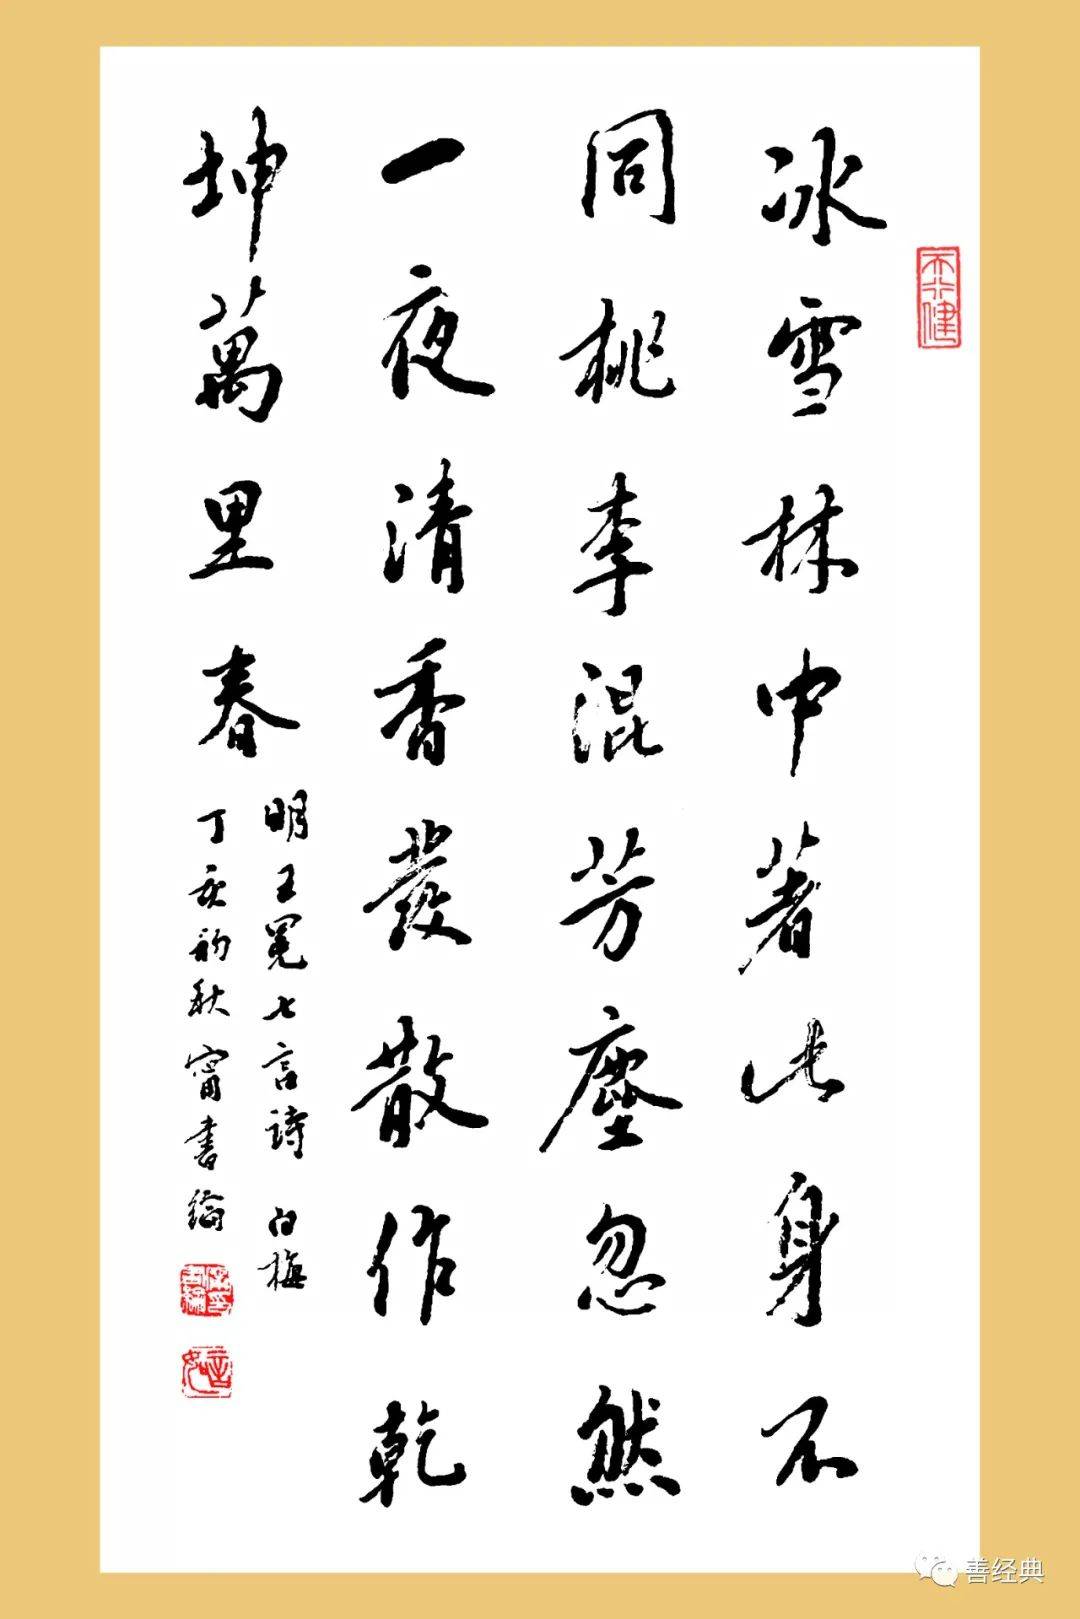 天行健
冰雪林中著此身不
同桃李混芳塵忽然
一夜清香發散作乾
坤萬里春
明王冕七言詩 白梅
丁亥初秋甯書綸
善经典